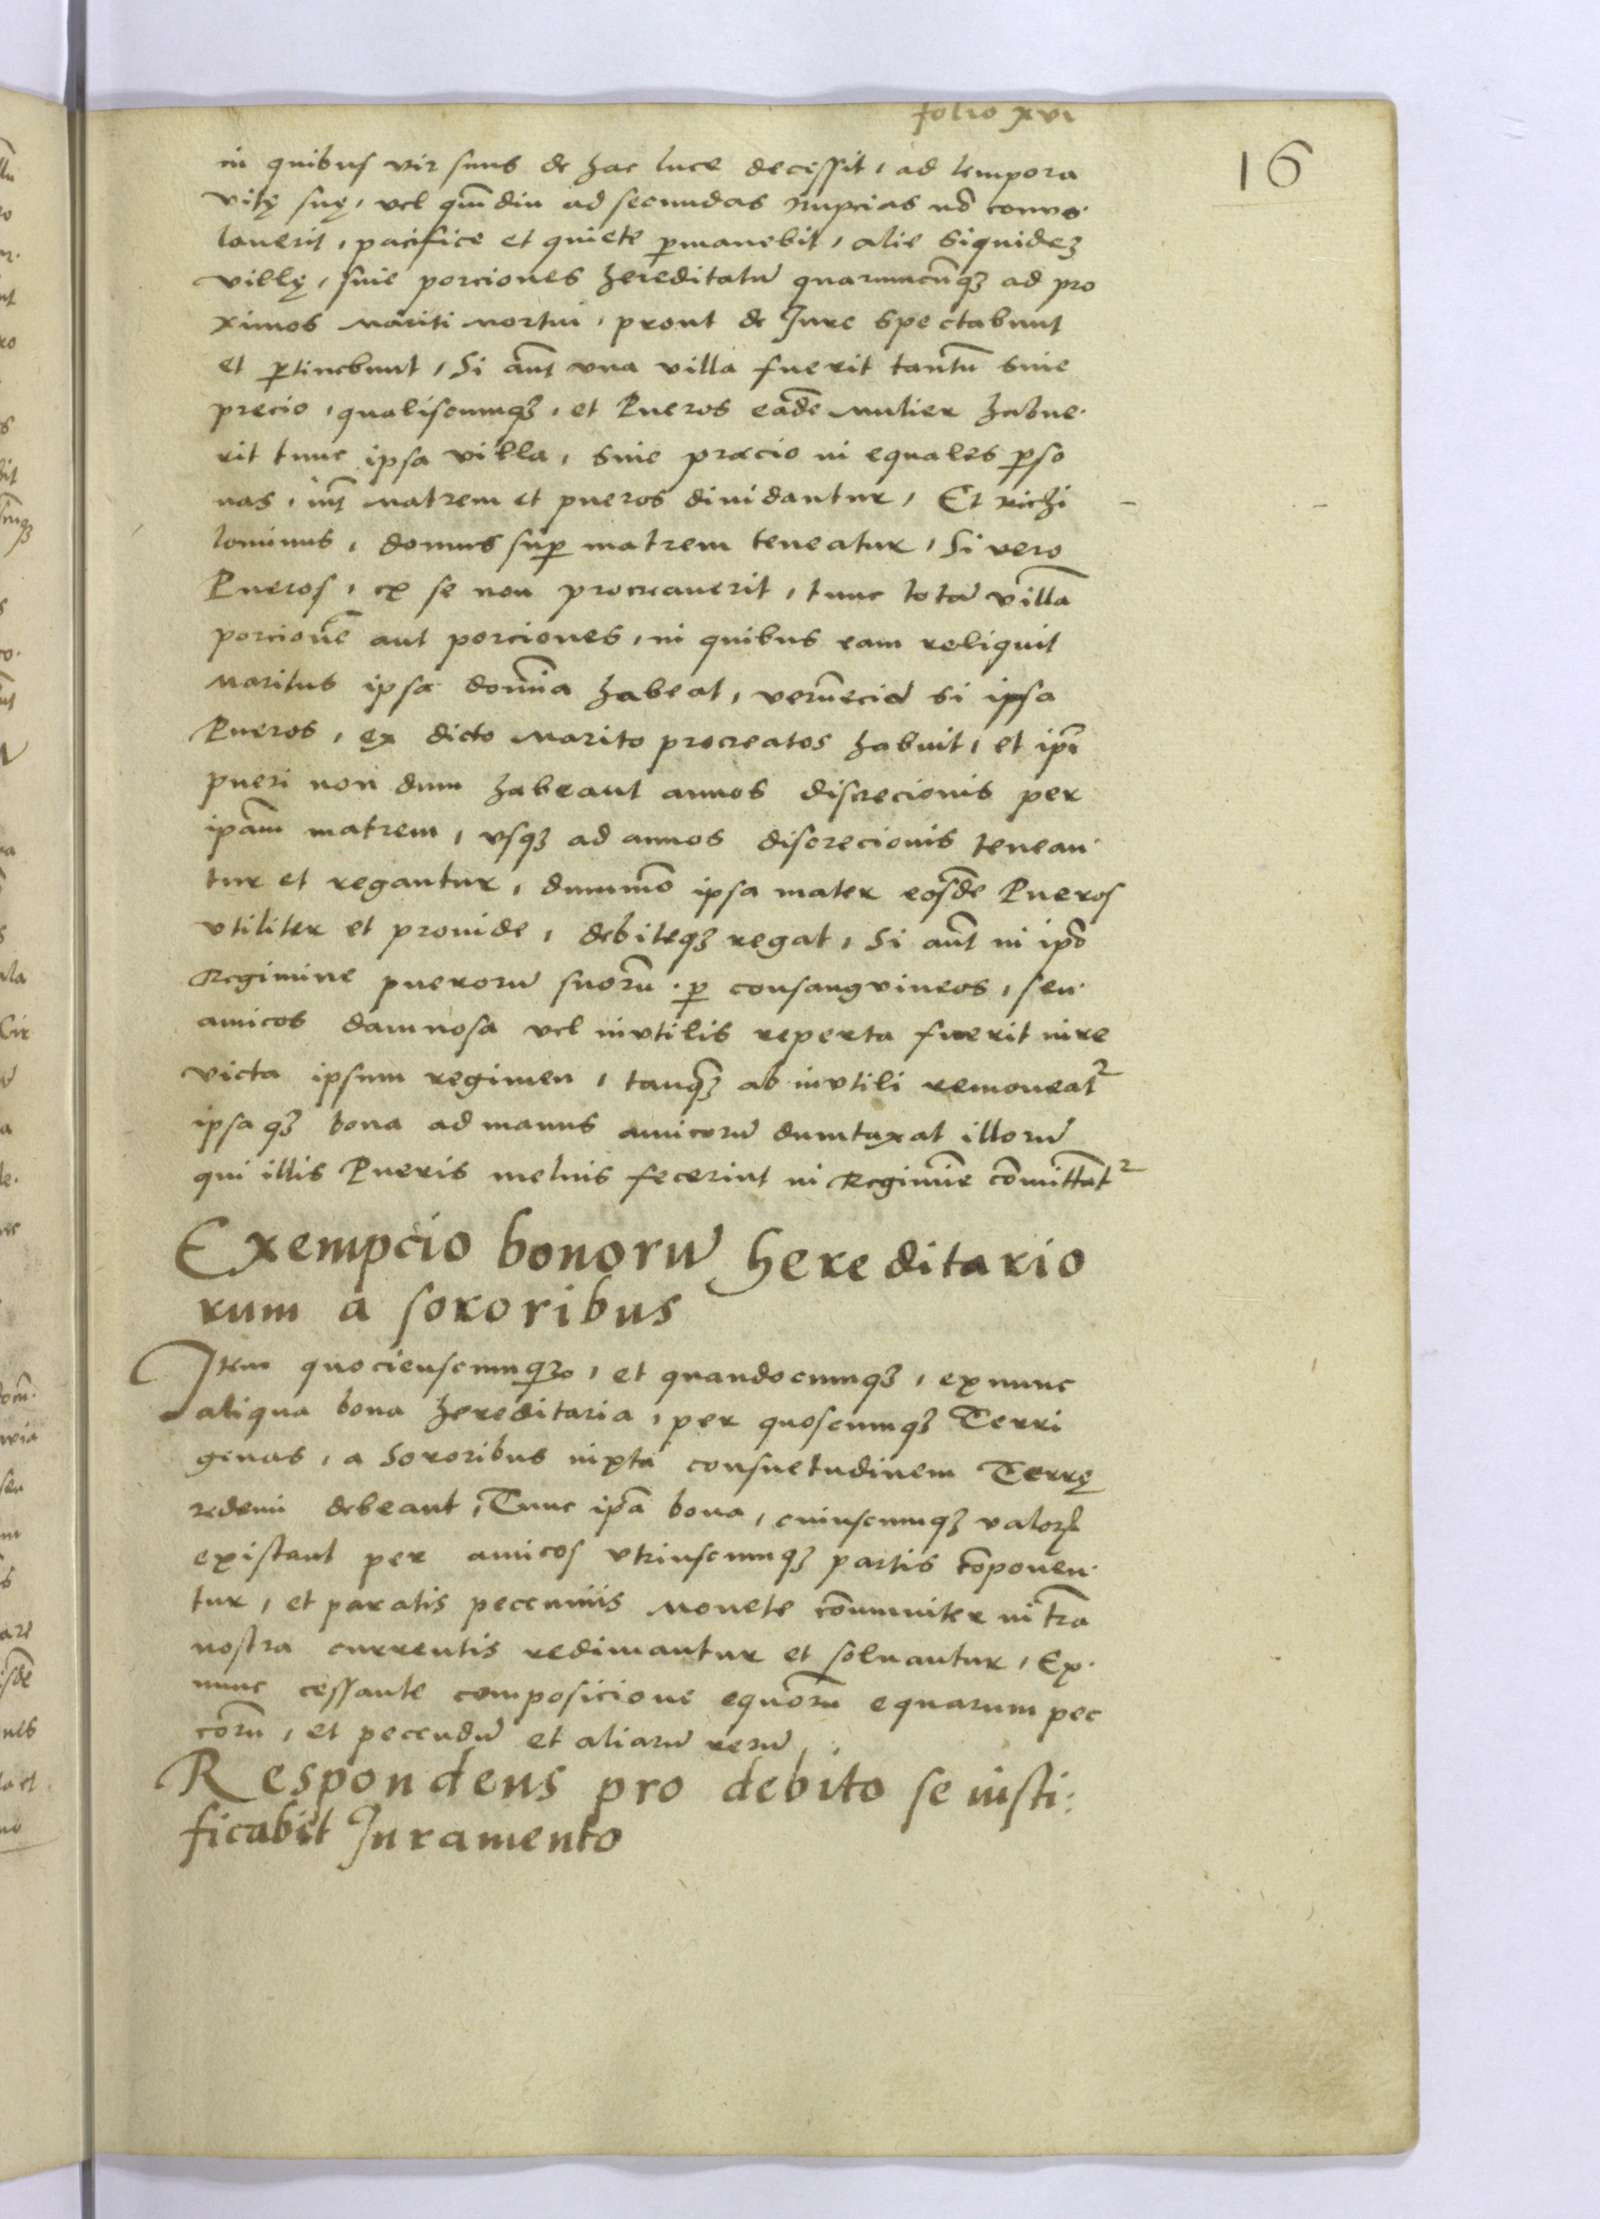 folio xvi
16
in quibus vir suus de hac luce decessit, ad tempora
vitę suę, vel qm̄diu ad secundas nupcias nō convo-
lauerit, pacifice et quiete ꝑmanebit, alie siquideꝫ
villę, siue porciones hereditatū quarumcūqꝫ ad pro
ximos mariti mortui, prout de Jure spectabunt
et ꝑtinebunt, Si aūt vna villa fuerit tantū siue
precio, qualiscumqꝫ, et Pueros eadē mulier habue-
rit tunc ipsa villa, siue precio in equales ꝑso
nas, int̄ matrem et pueros diuidantur, Et nichi
lominus, domus suꝑ matrem teneatur, Si vero
Pueros, ex se non procreauerit, tunc totā villā
porcionē aut porciones, in quibus eam reliquit
Maritus ipsa domīa habeat, si ipsa
Pueros, ex dicto Marito procreatos habuit, et ip̄i
pueri non dum habeant annos discrecionis per
ip̄am matrem, vsqꝫ ad annos discrecionis tenean-
tur et regantur, dummō ipsa mater eosdē Pueros
vtiliter et prouide, debiteqꝫ regat, Si aūt in ip̄o
Regimine puerorū suorū ꝑ consangvineos, seu
amicos damnosa vel invtilis reperta fuerit in re
victa ipsum regimen, tanqꝫ ab invtili remoueat᷑
ipsaqꝫ bona ad manus amicorū dumtaxat illorū
qui illis Pueris melius fecerint in Regimīe cōmittāt᷑
Exempcio bonorū hereditario
rum a sororibus
Item quociensqumqꝫ, et quandocumqꝫ, ex nunc
aliqua bona hereditaria, per quoscumqꝫ Terri
genas, a Sororibus iuxta consuetudinem Terrę
redemi debeant, Tunc ip̄a bona, cuiuscumqꝫ valoris
existant per amicos vtriuscumqꝫ partis cōponen-
tur, et paratis peccuniis Monete cōmuniter in tr̄a
nostra currentis redimantur et soluantur, Ex
nunc cessante composicione equorū equarum pec
corū, et peccudū et aliarū rerū
Respondens pro debito se iusti-
ficabit Juramento